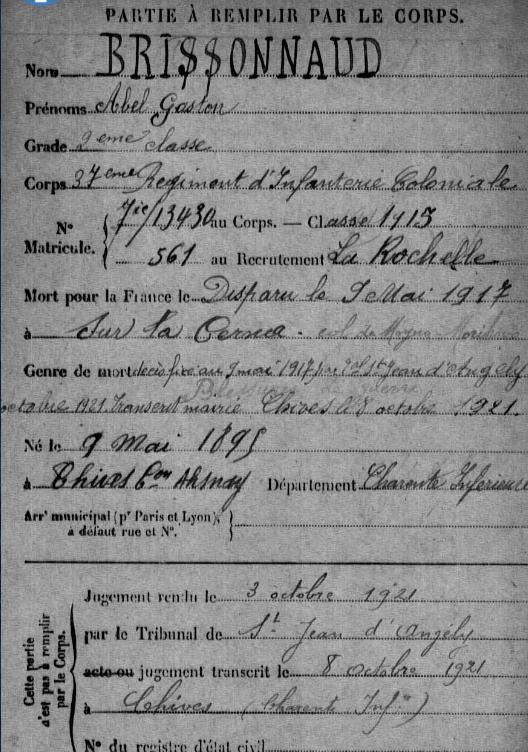 PARTIE À REMPLIR PAR LE CORPS.
Nom BRISSONNAUD
Prénoms Abel Gaston
Grade 2ème classe
Corps 37ème Regiment d'Infanterie Coloniale
N° Matricule. 7ie/13430 au Corps. — Classe 1915
561 au Recrutement La Rochelle
Mort pour la France le Disparu le 9 Mai 1917
à Sur la Cerna - col de
Genre de mort décès fixé au 9 mai 1917 par St Jean d'Angely
octobre 1921. Transcrit mairie Chives le 8 octobre 1921.
Né le 9 Mai 1895
à Chives Con Aulnay Département Charente Inférieure
Arrt municipal (pr Paris et Lyon),
à défaut rue et N°.
Cette partie n'est pas à remplir par le Corps.
Jugement rendu le 3 octobre 1921
par le Tribunal de St Jean d'Angély
acte ou jugement transcrit le 8 octobre 1921
à Chives (Charente Infre)
N° du registre d'état civil